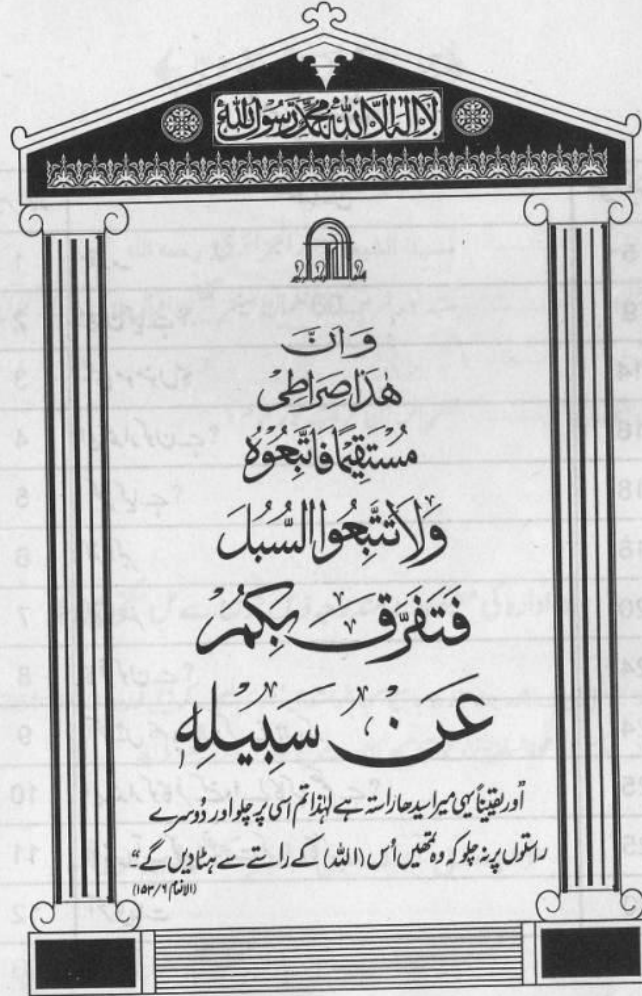 لا اله الا الله محمد رسول الله
وَاَنَّ
هٰذَا صِرَاطِیْ
مُسْتَقِیْمًا فَاتَّبِعُوْهُ
وَلَا تَتَّبِعُوا السُّبُلَ
فَتَفَرَّقَ بِکُمْ
عَنْ سَبِیْلِهٖ
”اور یقیناً یہی میرا سیدھا راستہ ہے لہٰذا تم اسی پر چلو اور دُوسرے
راستوں پر نہ چلو کہ وہ تمھیں اُس (اللہ) کے راستے سے ہٹا دیں گے“
(الانعام ۶/۱۵۳)